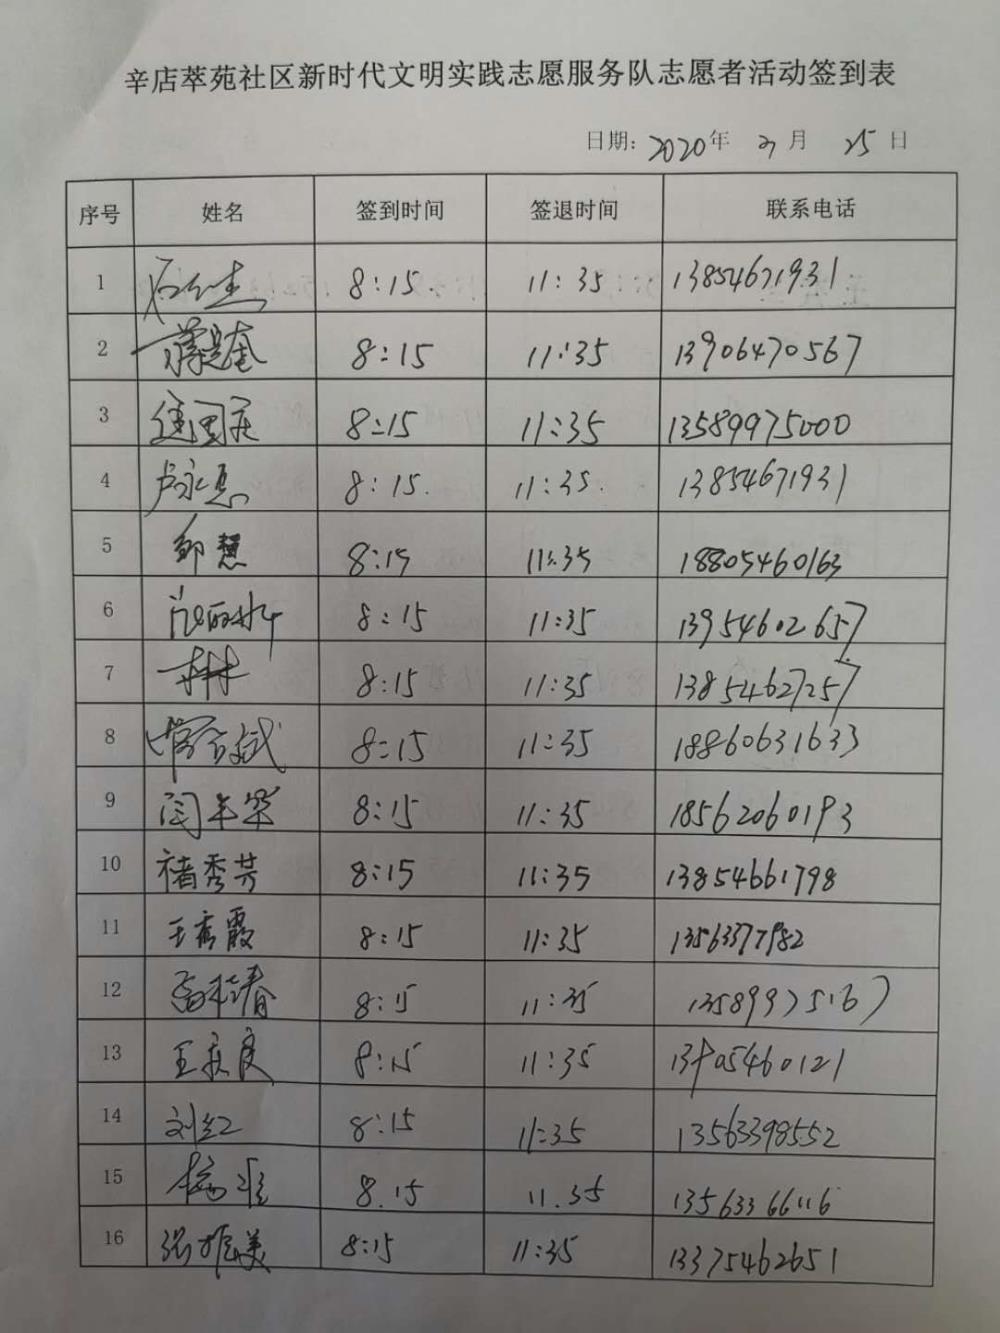 辛店萃苑社区新时代文明实践志愿服务队志愿者活动签到表
日期: 2020年 3月 25日
序号 姓名 签到时间 签退时间 联系电话
1 8:15. 11:35 13854671931
2 8:15 11:35 13906470567
3 8:15 11:35 13589975000
4 卢永惠 8:15. 11:35. 13854671931
5 邹慧 8:15 11:35 18805460163
6 8:15 11:35 13954602657
7 8:15 11:35 13854627257
8 8:15 11:35 18860631633
9 8:15 11:35 18562060193
10 褚秀芳 8:15 11:35 13854661798
11 王秀霞 8:15 11:35 13563377982
12 8:15 11:35 13589975167
13 8:15 11:35 13905460121
14 刘红 8:15 11:35 13563398552
15 8.15 11.35 13563366116
16 8:15 11:35 13375462651